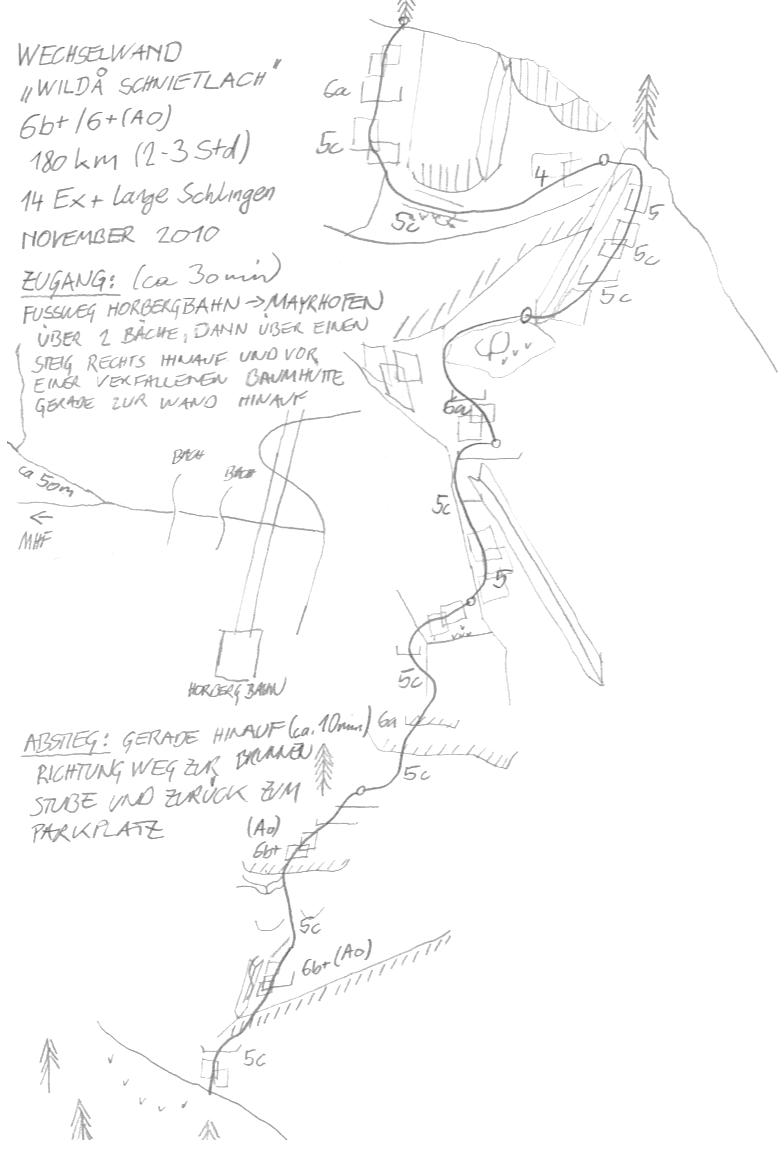 WECHSELWAND
„WILDÅ SCHNIETLACH"
6b+/6+(A0)
180 km (2-3 Std)
14 Ex + lange Schlingen
NOVEMBER 2010
ZUGANG: (ca 30min)
FUSSWEG HORBERGBAHN → MAYRHOFEN
ÜBER 2 BÄCHE, DANN ÜBER EINEN
STEIG RECHTS HINAUF UND VOR
EINER VERFALLENEN BAUMHÜTTE
GERADE ZUR WAND HINAUF
BACH
BACH
ca 50m
←
MHF
HORBERGBAHN
ABSTIEG: GERADE HINAUF (ca. 10min)
RICHTUNG WEG ZUR BRUNNEN
STUBE UND ZURÜCK ZUM
PARKPLATZ
6a
5c
5c
4
5
5c
5c
6a
5c
5
5c
6a
5c
(A0)
6b+
5c
6b+(A0)
5c